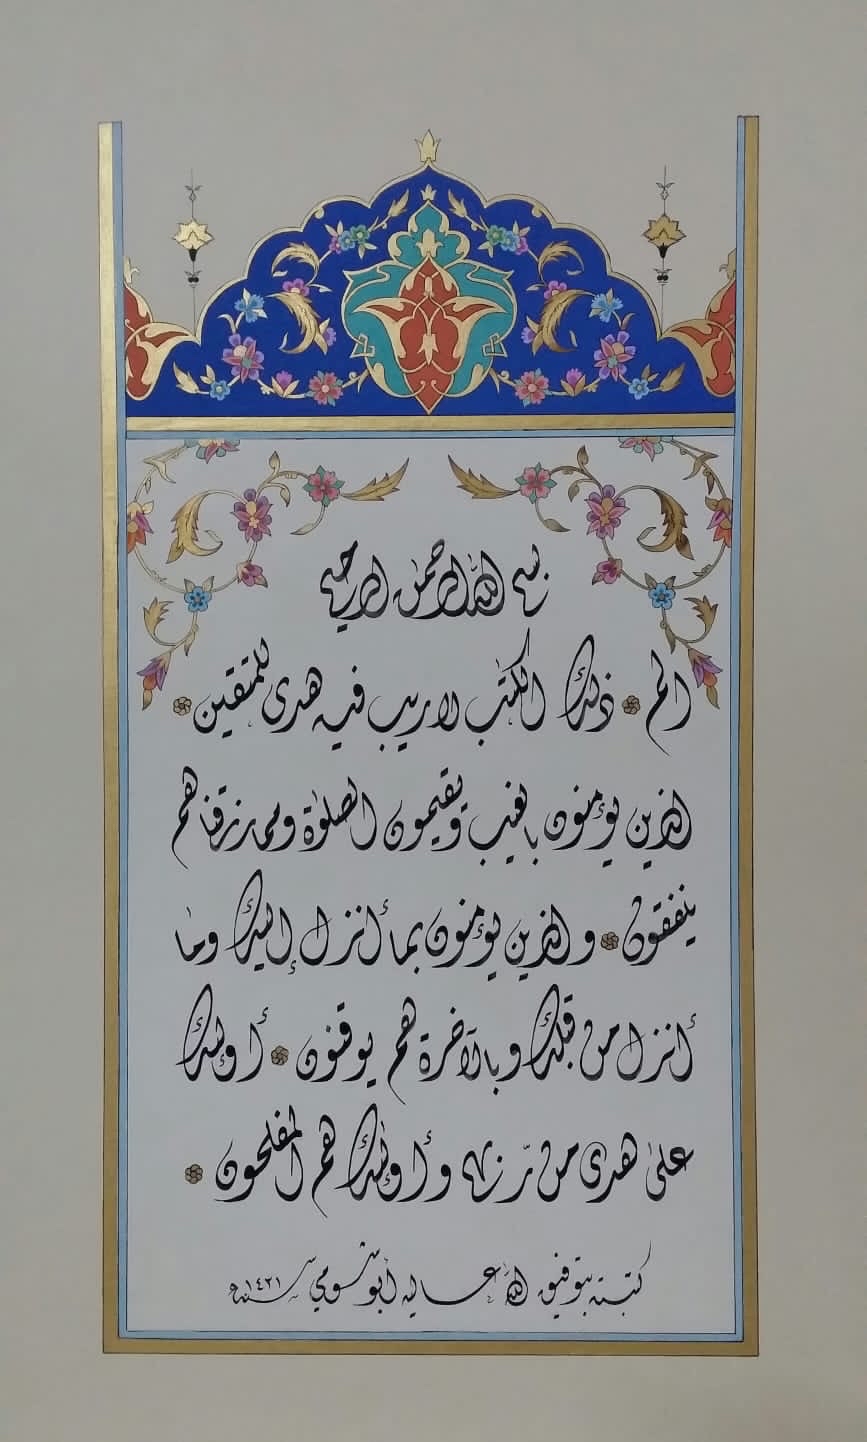 بسم الله الرحمن الرحيم
الم ۝ ذلك الكتٰب لا ريب فيه هدى للمتقين ۝
الذين يؤمنون بالغيب ويقيمون الصلوٰة ومما رزقناهم
ينفقون ۝ والذين يؤمنون بما أنزل إليك وما
أنزل من قبلك وبالآخرة هم يوقنون ۝ أولئك
على هدى من رّبهم وأولئك هم المفلحون ۝
كتبته بتوفيق الله عاليه أبو شومي سنة ١٤٢١